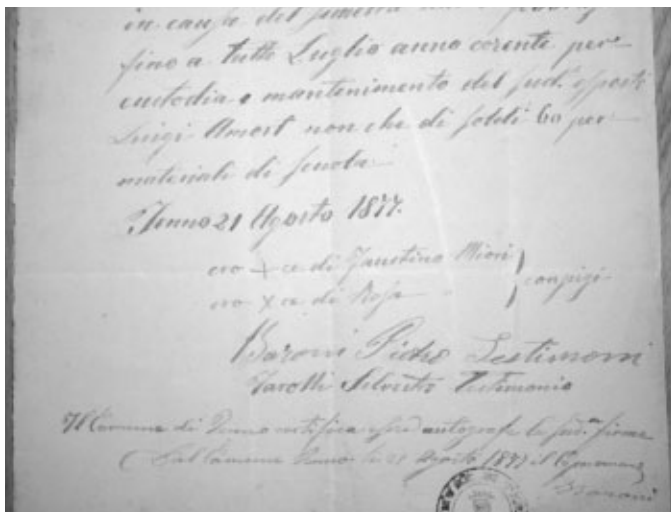 in causa del
fino a tutto Luglio anno corente per
custodia e mantenimento del sud.º esposti
Luigi Amort non che di soldi 60 per
materiali di scuola
Tenno 21 Agosto 1877.
cro + ce di Faustino Miori
cro X ce di Rosa } conjugi
Baroni Pietro Testimoni
Tarolli Silvestro Testimonio
Il Comune di Tenno certifica essere autografe le sud.e firme
Dal Comune Tenno li 21 Agosto 1877 il Capocomune
Baroni